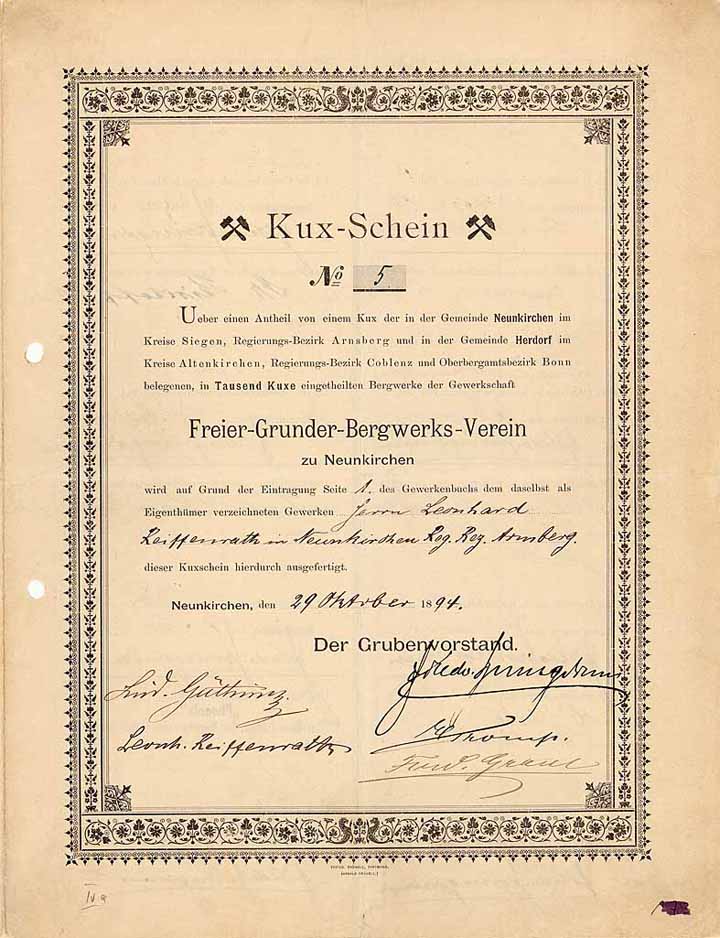 Kux-Schein
No 5
Ueber einen Antheil von einem Kux der in der Gemeinde Neunkirchen im
Kreise Siegen, Regierungs-Bezirk Arnsberg und in der Gemeinde Herdorf im
Kreise Altenkirchen, Regierungs-Bezirk Coblenz und Oberbergamtsbezirk Bonn
belegenen, in Tausend Kuxe eingetheilten Bergwerke der Gewerkschaft
Freier-Grunder-Bergwerks-Verein
zu Neunkirchen
wird auf Grund der Eintragung Seite 1. des Gewerkenbuchs dem daselbst als
Eigenthümer verzeichneten Gewerken Herrn Leonhard
Reiffenrath in Neunkirchen Reg. Bez. Arnsberg.
dieser Kuxschein hierdurch ausgefertigt.
Neunkirchen, den 29 Oktober 1894.
Der Grubenvorstand.
Leonh. Reiffenrath
Ferd.
IV a